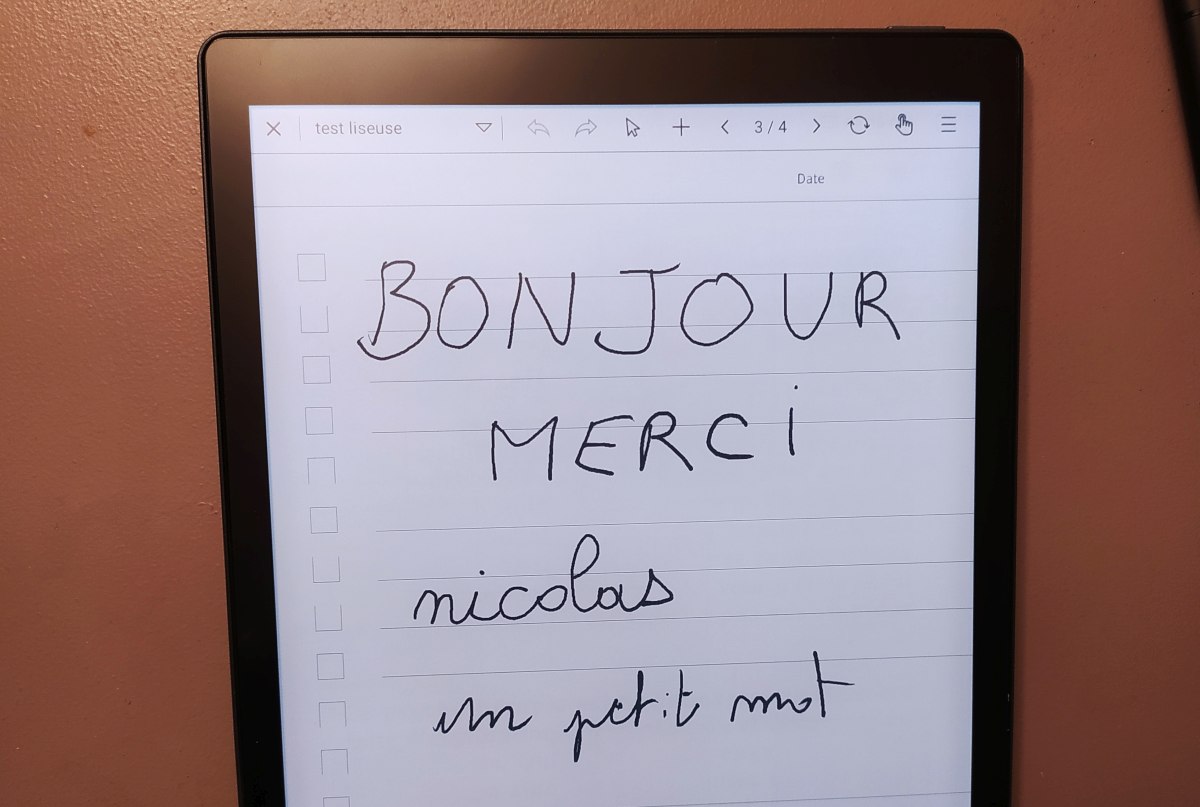 test liseuse 3 / 4
Date
BONJOUR
MERCi
nicolas
un petit mot